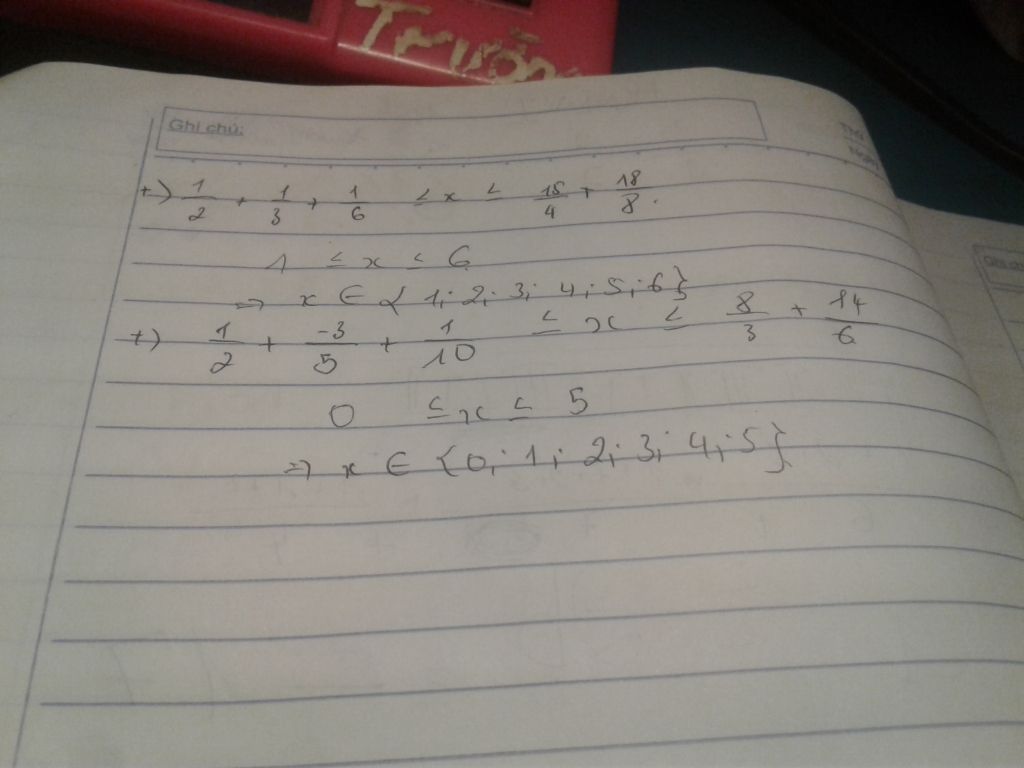 Trườn
Ghi chú:
Thứ
Ngày
+) 1/2 + 1/3 + 1/6 ≤ x ≤ 15/4 + 18/8.
1 ≤ x ≤ 6
=> x ∈ { 1; 2; 3; 4; 5; 6}
+) 1/2 + -3/5 + 1/10 ≤ x ≤ 8/3 + 14/6
0 ≤ x ≤ 5
=> x ∈ {0; 1; 2; 3; 4; 5}